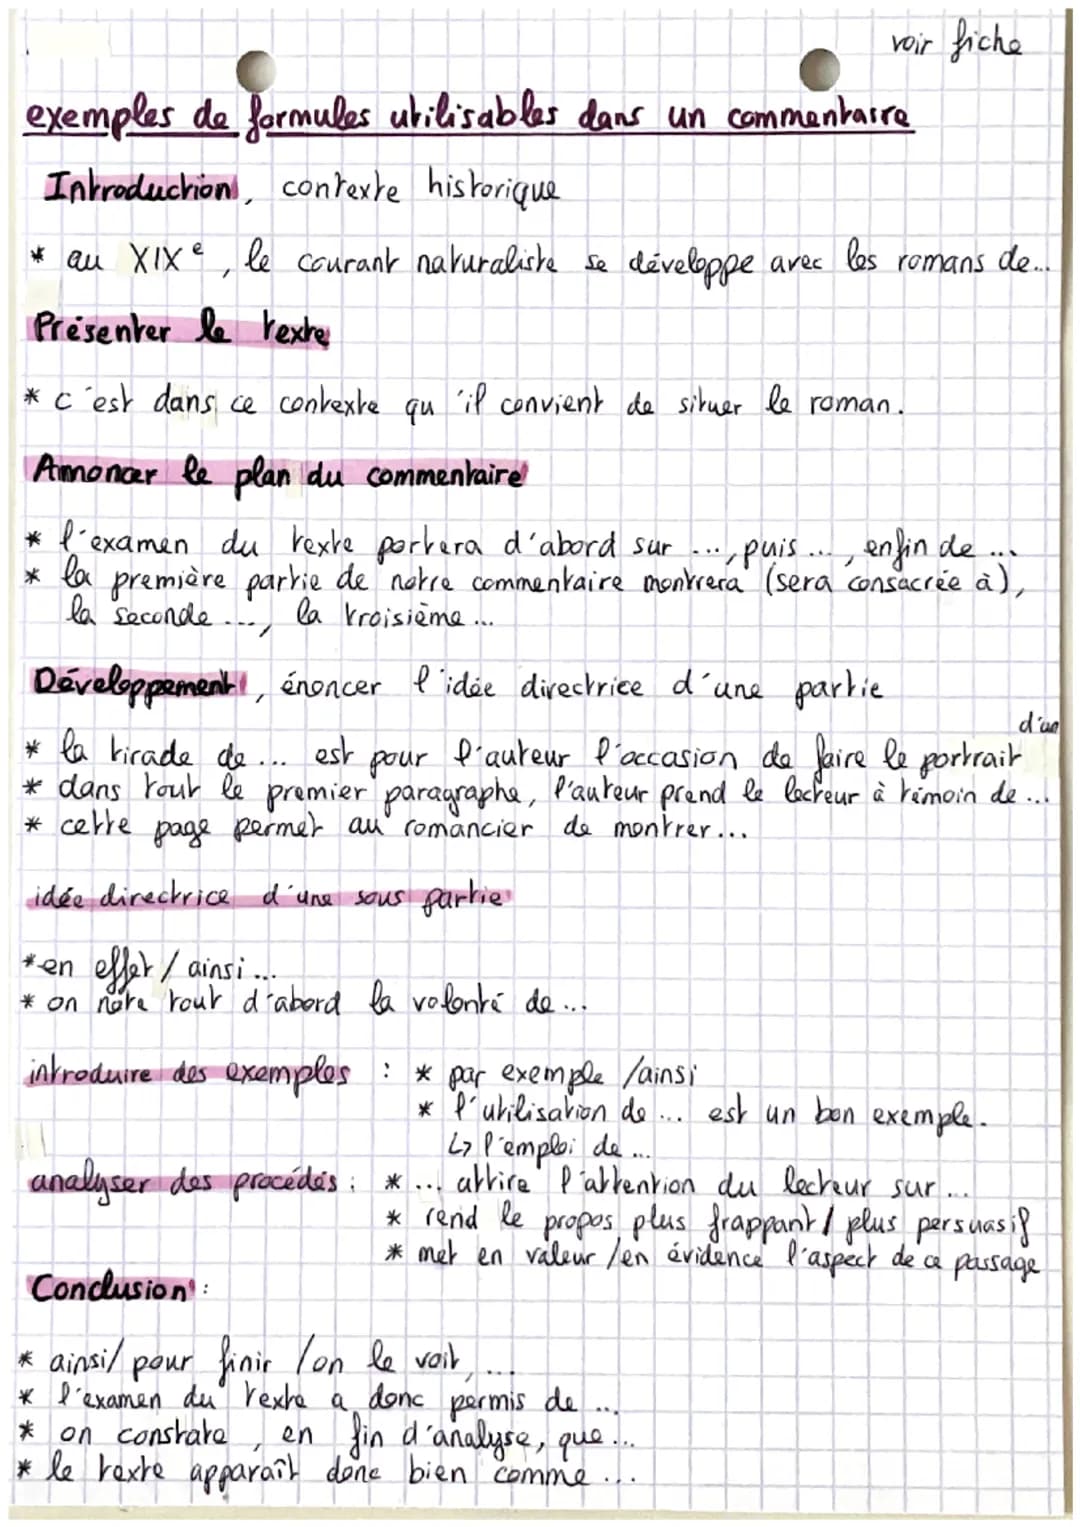 voir fiche
exemples de formules utilisables dans un commentaire
Introduction, contexte historique
* au XIXe, le courant naturaliste se développe avec les romans de...
Présenter le texte
* c'est dans ce contexte qu'il convient de situer le roman.
Annoncer le plan du commentaire
* l'examen du texte portera d'abord sur ..., puis ..., enfin de ...
* la première partie de notre commentaire montrera (sera consacrée à),
la seconde ..., la troisième ...
Développement, énoncer l'idée directrice d'une partie
* la tirade de ... est pour l'auteur l'occasion de faire le portrait d'un
* dans tout le premier paragraphe, l'auteur prend le lecteur à témoin de ...
* cette page permet au romancier de montrer...
idée directrice d'une sous partie
* en effet / ainsi ...
* on note tout d'abord la volonté de ...
introduire des exemples : * par exemple /ainsi
* l'utilisation de ... est un bon exemple.
↳ l'emploi de ...
analyser des procédés : * ... attire l'attention du lecteur sur ...
* rend le propos plus frappant / plus persuasif
* met en valeur /en évidence l'aspect de ce passage
Conclusion :
* ainsi/ pour finir /on le voit, ...
* l'examen du texte a donc permis de ...
* on constate, en fin d'analyse, que ...
* le texte apparaît donc bien comme ...